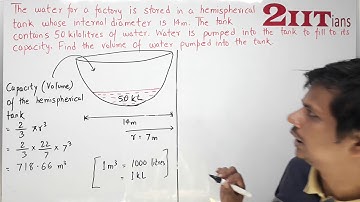 The water for a factory is stored in a hemispherical
tank whose internal diameter is 14m. The tank
contains 50 kilolitres of water. Water is pumped into the tank to fill to its
capacity. Find the volume of water pumped into the tank.
2IITians
Capacity (Volume)
of the hemispherical
tank
= 2/3 πr³
= 2/3 × 22/7 × 7³
= 718.66 m³
50 kL
14m
r = 7m
[ 1m³ = 1000 litres
= 1kL ]